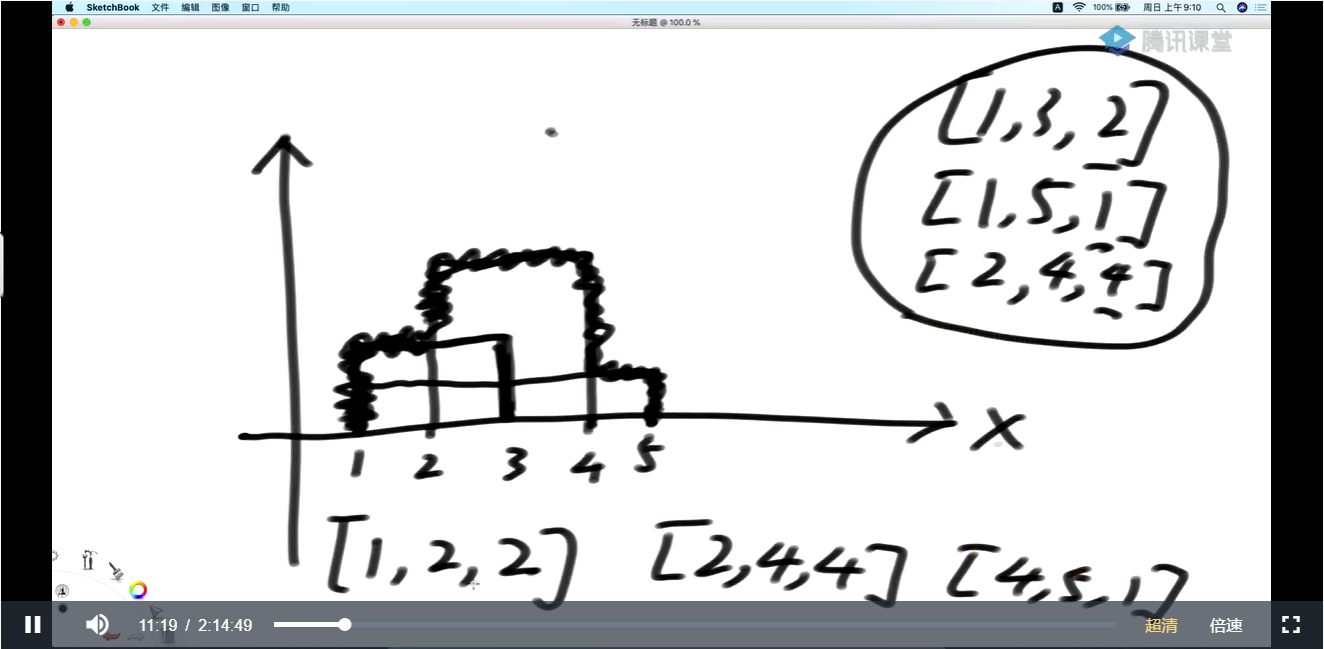 SketchBook 文件 编辑 图像 窗口 帮助 A 100% 周日 上午9:10
无标题 @ 100.0 %
腾讯课堂
[1,3,2]
[1,5,1]
[2,4,4]
X
1 2 3 4 5
[1,2,2] [2,4,4] [4,5,1]
11:19 / 2:14:49 超清 倍速